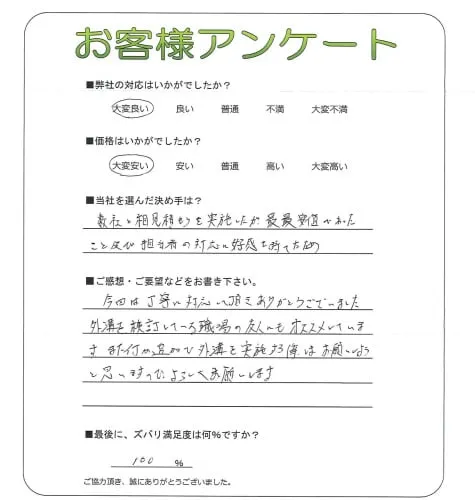 お客様アンケート
■弊社の対応はいかがでしたか？
大変良い 良い 普通 不満 大変不満
■価格はいかがでしたか？
大変安い 安い 普通 高い 大変高い
■当社を選んだ決め手は？
数社と相見積もりを実施したが最安値であった
こと及び担当者の対応に好感を持てたため
■ご感想・ご要望などをお書き下さい。
今回は丁寧に対応して頂きありがとうございました
外溝を検討している職場の友人にもオススメしていま
す また何か追加で外溝を実施する際はお願いしよう
と思いますのでよろしくお願いします
■最後に、ズバリ満足度は何％ですか？
100 ％
ご協力頂き、誠にありがとうございました。